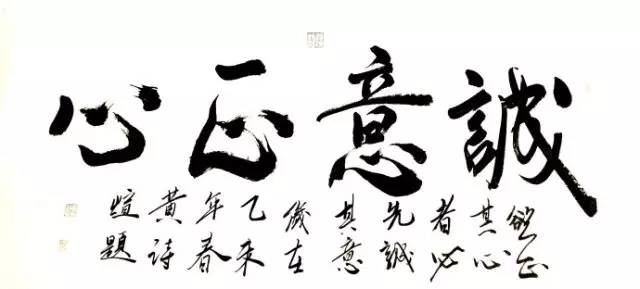 誠意正心
欲正
其心
者必
先誠
其意
歲在
乙未
年春
黃詩
題